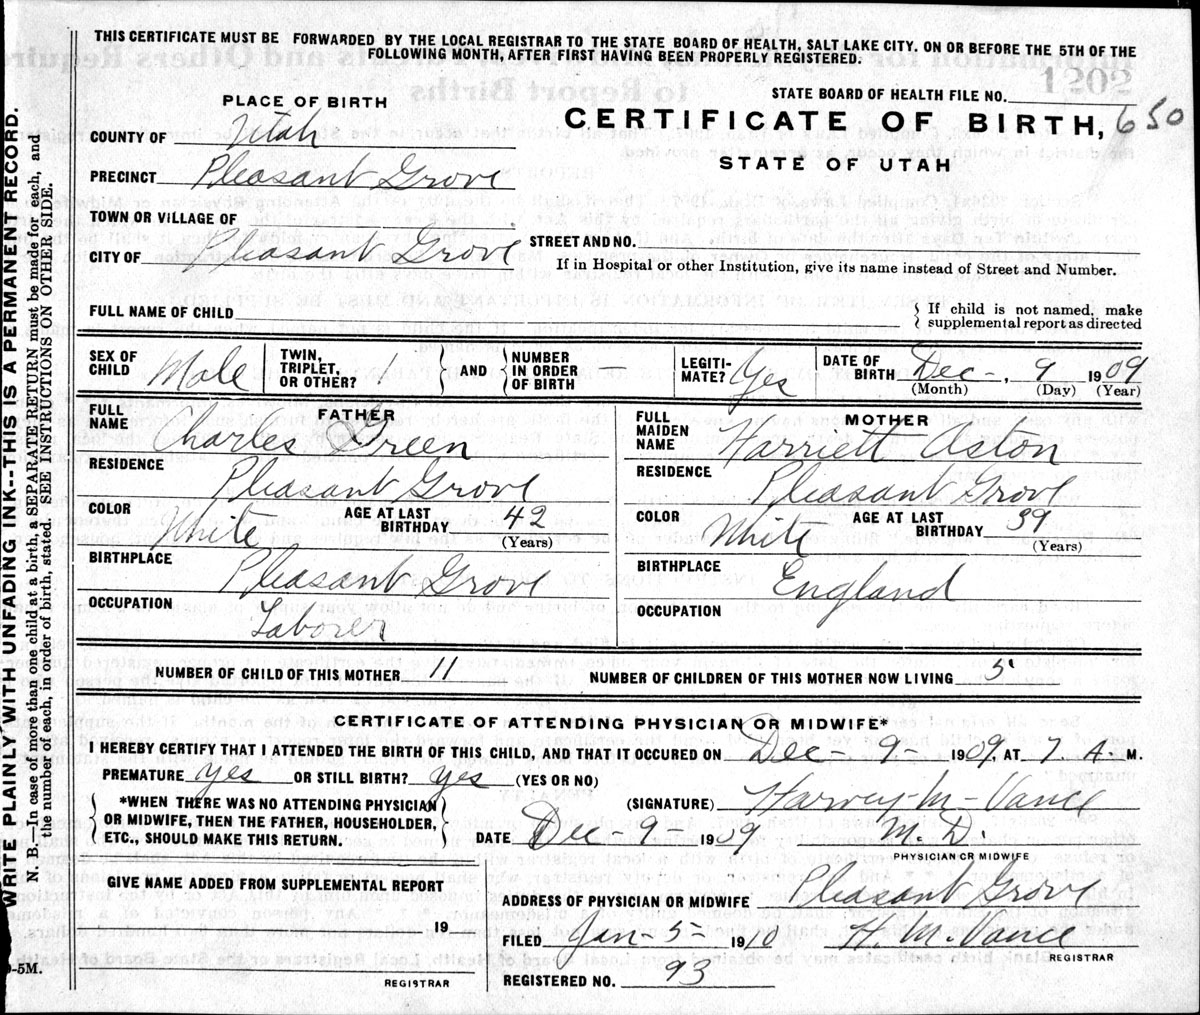 THIS CERTIFICATE MUST BE FORWARDED BY THE LOCAL REGISTRAR TO THE STATE BOARD OF HEALTH, SALT LAKE CITY. ON OR BEFORE THE 5TH OF THE
FOLLOWING MONTH, AFTER FIRST HAVING BEEN PROPERLY REGISTERED.
1202
STATE BOARD OF HEALTH FILE NO.
PLACE OF BIRTH
CERTIFICATE OF BIRTH, 650
STATE OF UTAH
COUNTY OF Utah
PRECINCT Pleasant Grove
TOWN OR VILLAGE OF
CITY OF Pleasant Grove
STREET AND NO.
If in Hospital or other Institution, give its name instead of Street and Number.
FULL NAME OF CHILD
If child is not named, make
supplemental report as directed
SEX OF CHILD Male
TWIN, TRIPLET, OR OTHER? 1
AND
NUMBER IN ORDER OF BIRTH
LEGITI-MATE? Yes
DATE OF BIRTH Dec-, 9 1909
(Month) (Day) (Year)
FATHER
FULL NAME Charles Green
RESIDENCE Pleasant Grove
COLOR White AGE AT LAST BIRTHDAY 42
(Years)
BIRTHPLACE Pleasant Grove
OCCUPATION Laborer
MOTHER
FULL MAIDEN NAME Harriett Aston
RESIDENCE Pleasant Grove
COLOR White AGE AT LAST BIRTHDAY 39
(Years)
BIRTHPLACE England
OCCUPATION
NUMBER OF CHILD OF THIS MOTHER 11 NUMBER OF CHILDREN OF THIS MOTHER NOW LIVING 5
CERTIFICATE OF ATTENDING PHYSICIAN OR MIDWIFE*
I HEREBY CERTIFY THAT I ATTENDED THE BIRTH OF THIS CHILD, AND THAT IT OCCURED ON Dec 9- 1909, AT 7. A. M.
PREMATURE yes OR STILL BIRTH? yes (YES OR NO)
*WHEN THERE WAS NO ATTENDING PHYSICIAN
OR MIDWIFE, THEN THE FATHER, HOUSEHOLDER,
ETC., SHOULD MAKE THIS RETURN.
(SIGNATURE) Harvey M- Vance
DATE Dec-9- 1909 M.D.
PHYSICIAN OR MIDWIFE
GIVE NAME ADDED FROM SUPPLEMENTAL REPORT
19
REGISTRAR
ADDRESS OF PHYSICIAN OR MIDWIFE Pleasant Grove
FILED Jan-5- 1910 H. M. Vance
REGISTRAR
REGISTERED NO. 93
WRITE PLAINLY WITH UNFADING INK--THIS IS A PERMANENT RECORD.
N. B.—In case of more than one child at a birth, a SEPARATE RETURN must be made for each, and
the number of each, in order of birth, stated. SEE INSTRUCTIONS ON OTHER SIDE.
-5M.